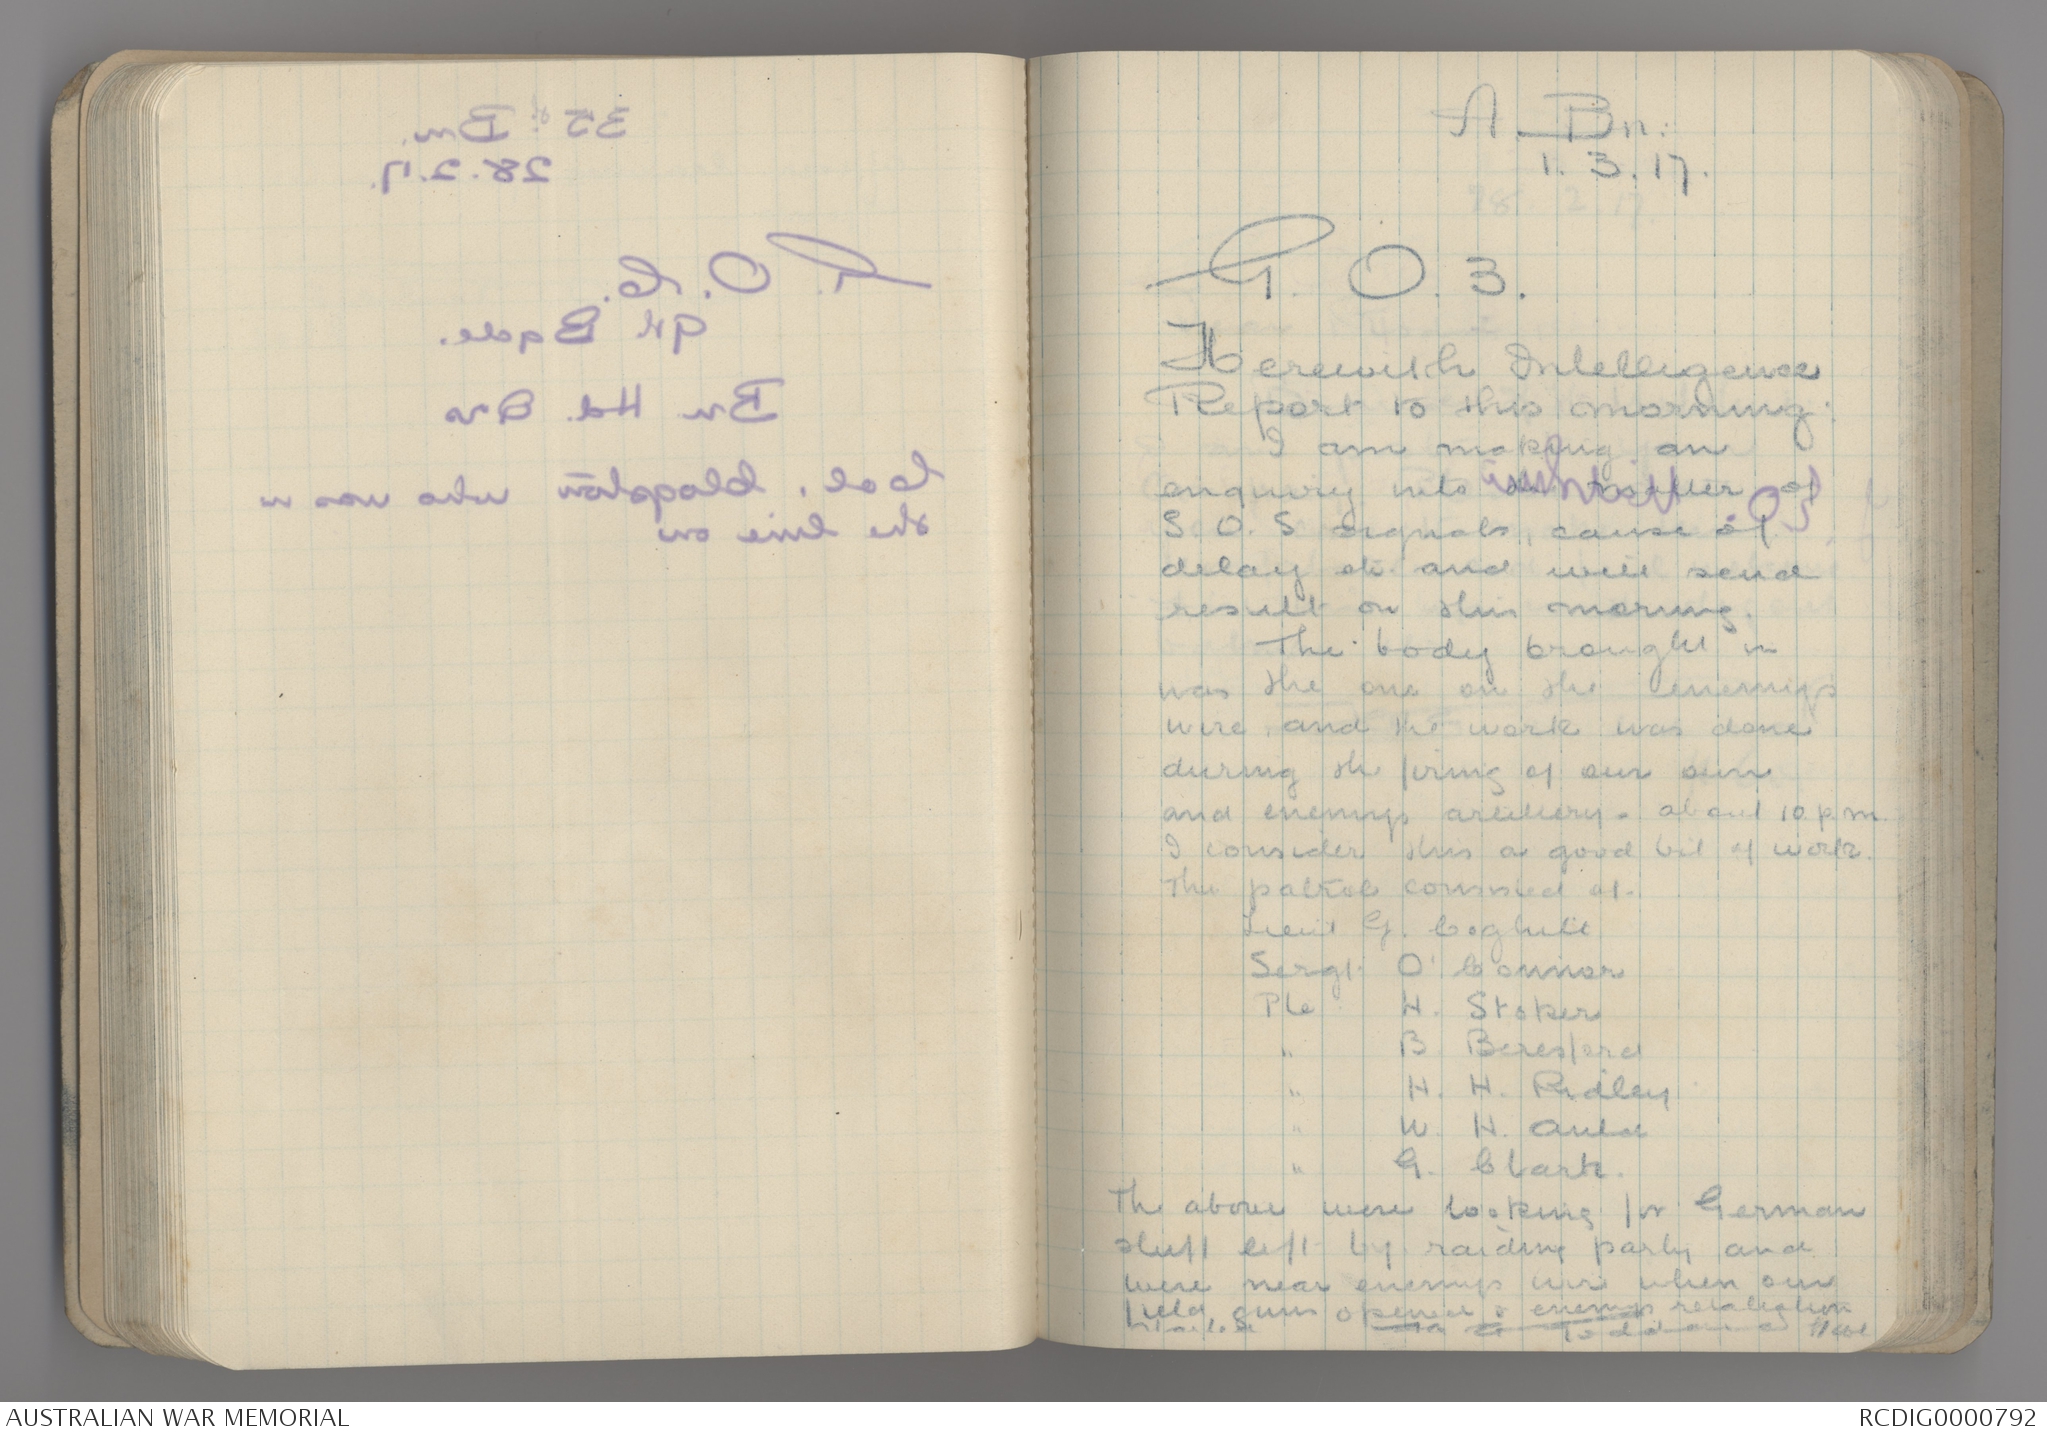 35th Bn.
28.2.17.
G.O.C.
9th Bgde.
Bn Hd. Qrs
Col. who was in
the line on
A. Bn.
1.3.17.
G. O. 3.
Herewith Intelligence
Report to this morning:
I am making an
enquiry into matter of
S.O.S signals, cause of
delay etc. and will send
result on this morning.
The body brought in
was the one on the enemys
wire and the work was done
during the firing of our own
and enemys artillery - about 10 p.m.
I consider this a good bit of work.
The patrol consisted of-
Lieut G. Coghill
Sergt. O'Connor
Pte H. Stoker
" B Beresford
" H. H. Ridley
" W. H. Auld
" G. Clark.
The above were looking for German
stuff left by raiding party and
were near enemys wire when our
field guns opened & enemys retaliation
AUSTRALIAN WAR MEMORIAL
RCDIG0000792